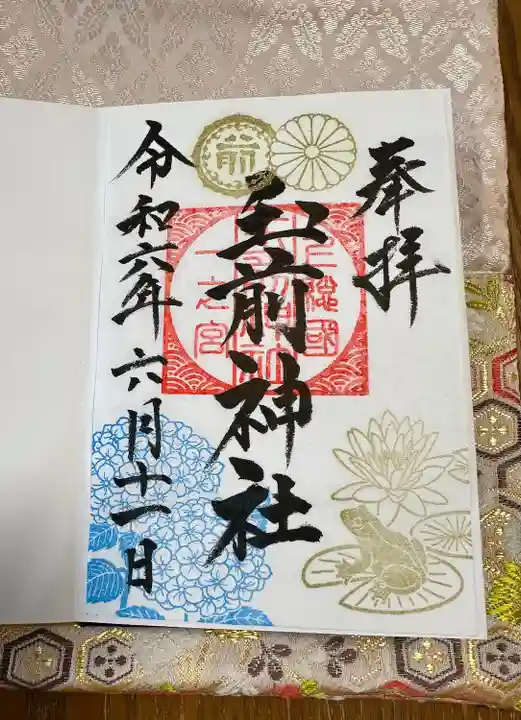 奉拝
上総國
玉前神社
一之宮
前
令和六年六月十一日